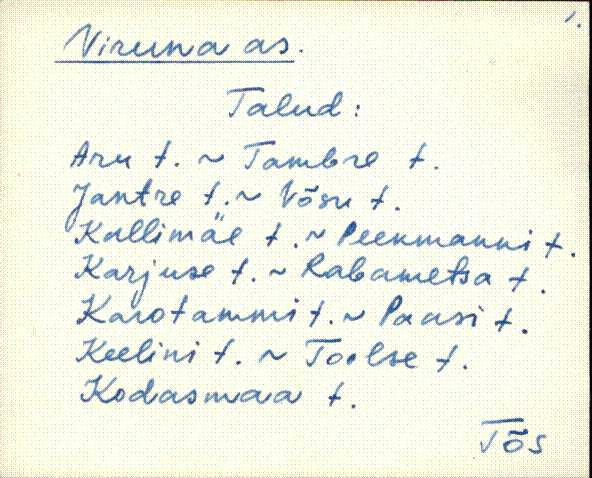 1.
Viruna as.
Talud:
Aru t. ~ Tambre t.
Jantre t. ~ Võsu t.
Kallimäe t. ~ Peenmanni t.
Karjuse t. ~ Rabametsa t.
Karotammi t. ~ Paasi t.
Keelini t. ~ Toolse t.
Kodasmaa t.
Tõs